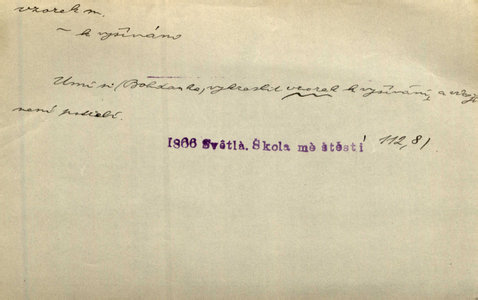 vzorek m.
~ k vyšíváno
Umí si (Bohdanka) vykreslit vzorek k vyšívání, a
není potřebí.
1866 Světlá. Škola mè štěstí 112,81